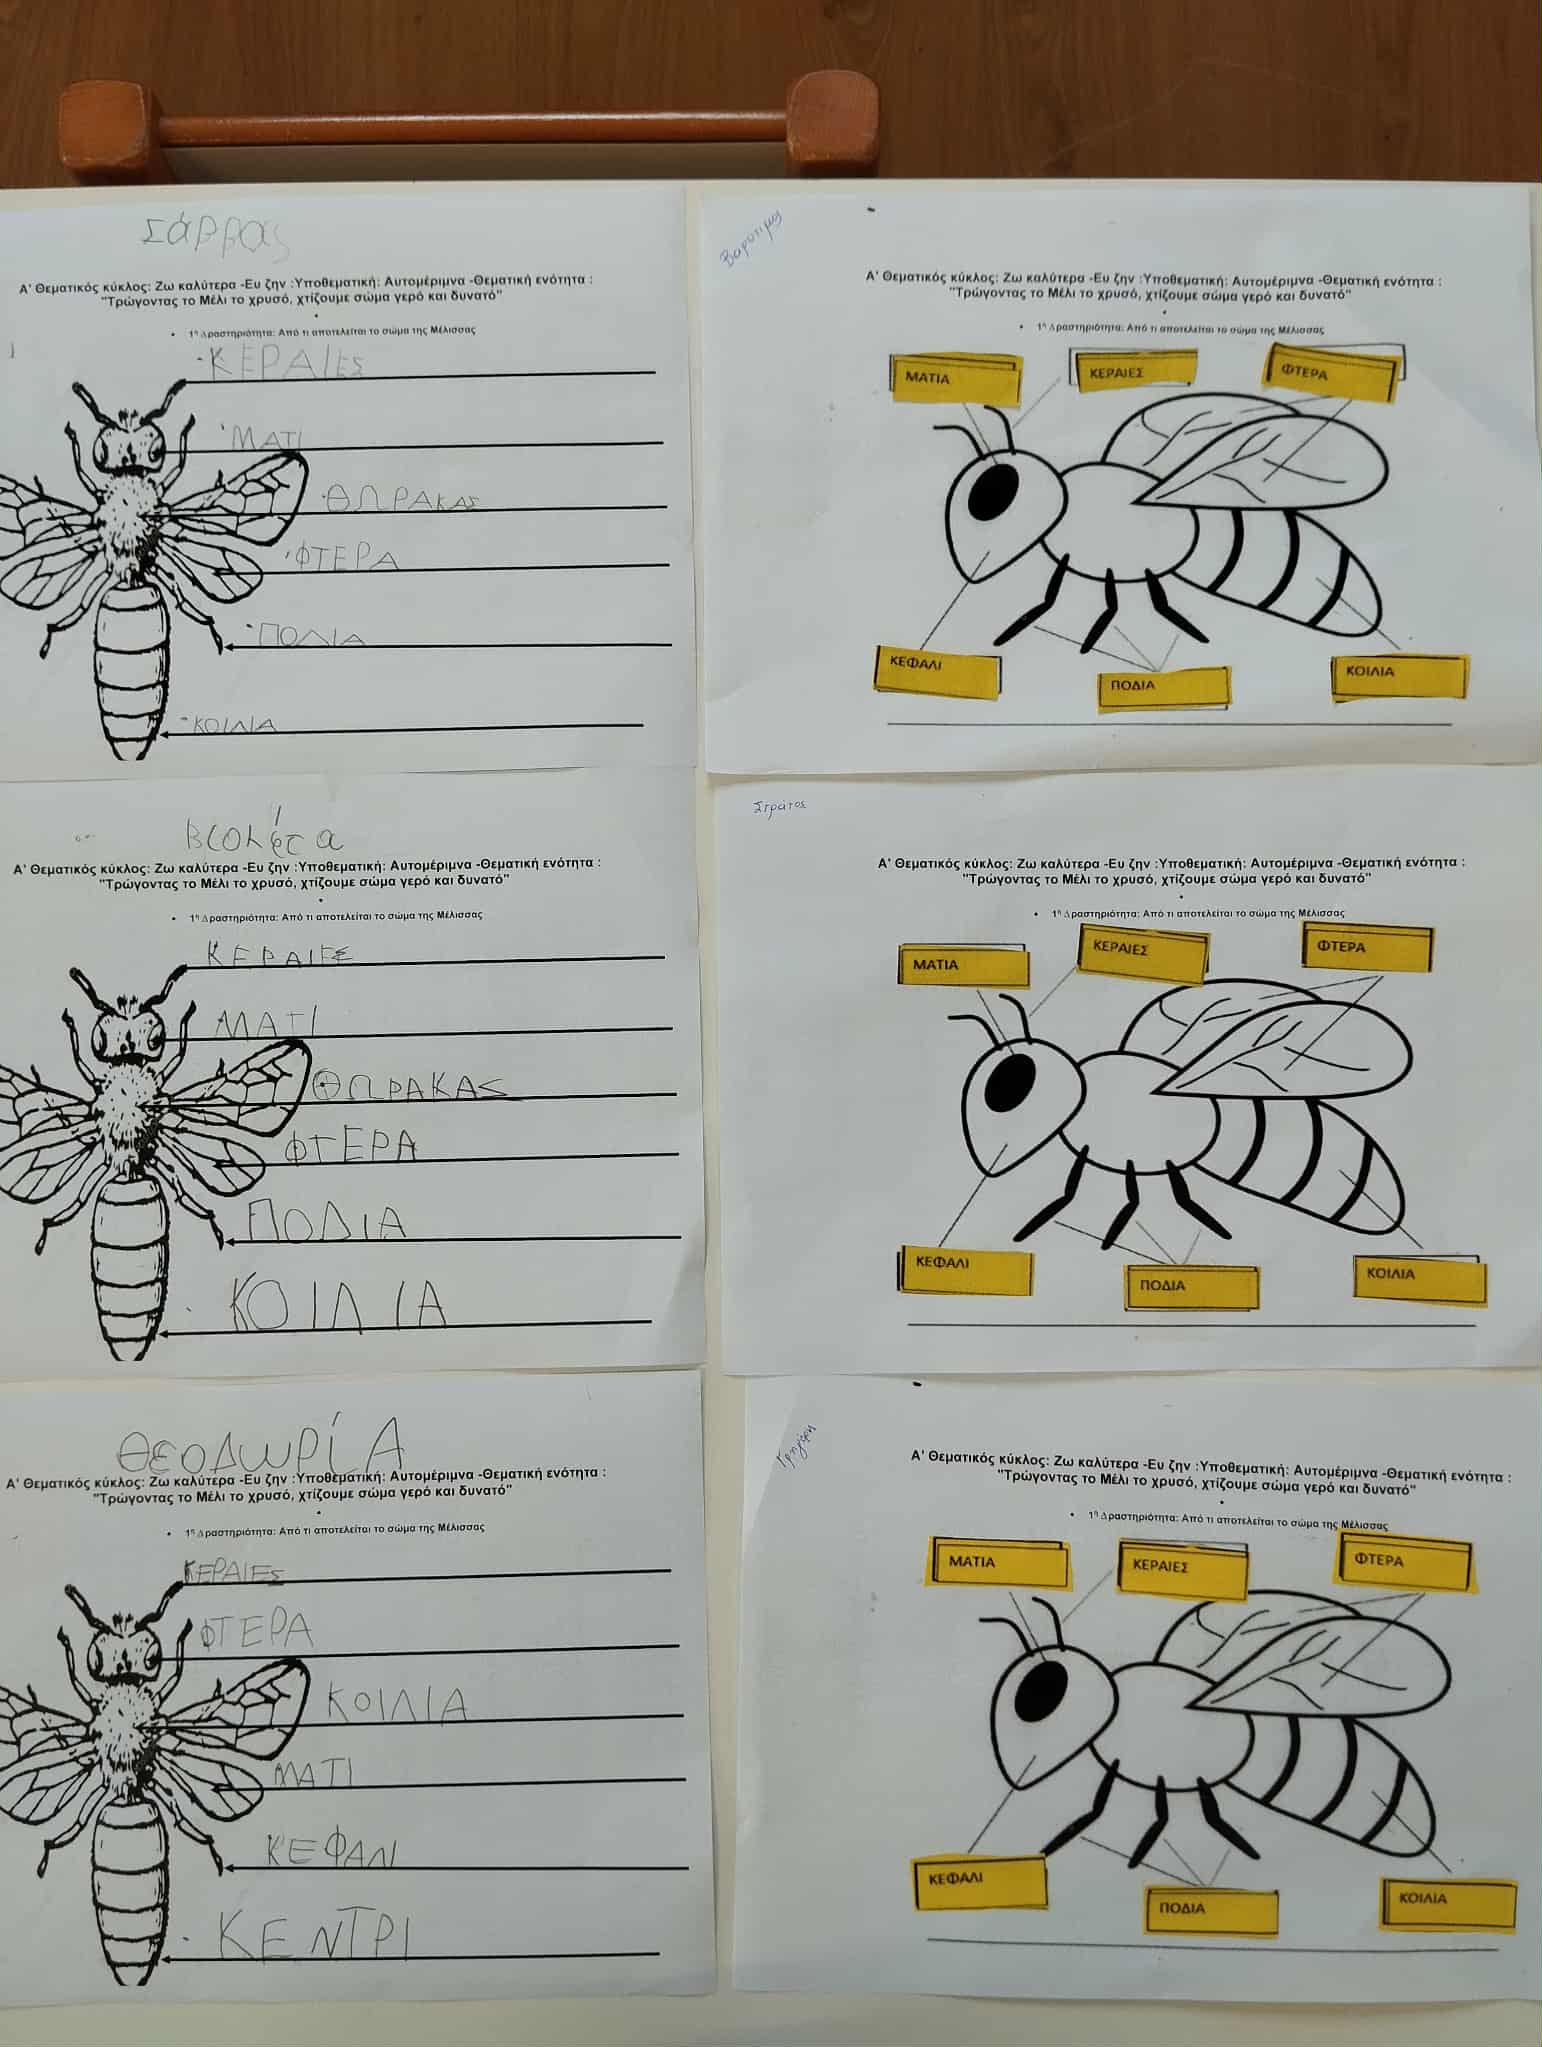 Σάββας
Α' Θεματικός κύκλος: Ζω καλύτερα -Ευ ζην :Υποθεματική: Αυτομέριμνα -Θεματική ενότητα :
"Τρώγοντας το Μέλι το χρυσό, χτίζουμε σώμα γερό και δυνατό"
1η Δραστηριότητα: Από τι αποτελείται το σώμα της Μέλισσας
ΚΕΡΑΙΕΣ
ΜΑΤΙ
ΘΩΡΑΚΑΣ
ΦΤΕΡΑ
ΠΟΔΙΑ
ΚΟΙΛΙΑ
Α' Θεματικός κύκλος: Ζω καλύτερα -Ευ ζην :Υποθεματική: Αυτομέριμνα -Θεματική ενότητα :
"Τρώγοντας το Μέλι το χρυσό, χτίζουμε σώμα γερό και δυνατό"
1η Δραστηριότητα: Από τι αποτελείται το σώμα της Μέλισσας
ΜΑΤΙΑ
ΚΕΡΑΙΕΣ
ΦΤΕΡΑ
ΚΕΦΑΛΙ
ΠΟΔΙΑ
ΚΟΙΛΙΑ
Βιολέτα
Α' Θεματικός κύκλος: Ζω καλύτερα -Ευ ζην :Υποθεματική: Αυτομέριμνα -Θεματική ενότητα :
"Τρώγοντας το Μέλι το χρυσό, χτίζουμε σώμα γερό και δυνατό"
1η Δραστηριότητα: Από τι αποτελείται το σώμα της Μέλισσας
ΚΕΡΑΙΕΣ
ΜΑΤΙ
ΘΩΡΑΚΑΣ
ΦΤΕΡΑ
ΠΟΔΙΑ
ΚΟΙΛΙΑ
Στράτος
Α' Θεματικός κύκλος: Ζω καλύτερα -Ευ ζην :Υποθεματική: Αυτομέριμνα -Θεματική ενότητα :
"Τρώγοντας το Μέλι το χρυσό, χτίζουμε σώμα γερό και δυνατό"
1η Δραστηριότητα: Από τι αποτελείται το σώμα της Μέλισσας
ΜΑΤΙΑ
ΚΕΡΑΙΕΣ
ΦΤΕΡΑ
ΚΕΦΑΛΙ
ΠΟΔΙΑ
ΚΟΙΛΙΑ
ΘεοΔωρίΑ
Α' Θεματικός κύκλος: Ζω καλύτερα -Ευ ζην :Υποθεματική: Αυτομέριμνα -Θεματική ενότητα :
"Τρώγοντας το Μέλι το χρυσό, χτίζουμε σώμα γερό και δυνατό"
1η Δραστηριότητα: Από τι αποτελείται το σώμα της Μέλισσας
ΚΕΡΑΙΕΣ
ΦΤΕΡΑ
ΚΟΙΛΙΑ
ΜΑΤΙ
ΚΕΦΑΛΙ
ΚΕΝΤΡΙ
Γρηγόρη
Α' Θεματικός κύκλος: Ζω καλύτερα -Ευ ζην :Υποθεματική: Αυτομέριμνα -Θεματική ενότητα :
"Τρώγοντας το Μέλι το χρυσό, χτίζουμε σώμα γερό και δυνατό"
1η Δραστηριότητα: Από τι αποτελείται το σώμα της Μέλισσας
ΜΑΤΙΑ
ΚΕΡΑΙΕΣ
ΦΤΕΡΑ
ΚΕΦΑΛΙ
ΠΟΔΙΑ
ΚΟΙΛΙΑ